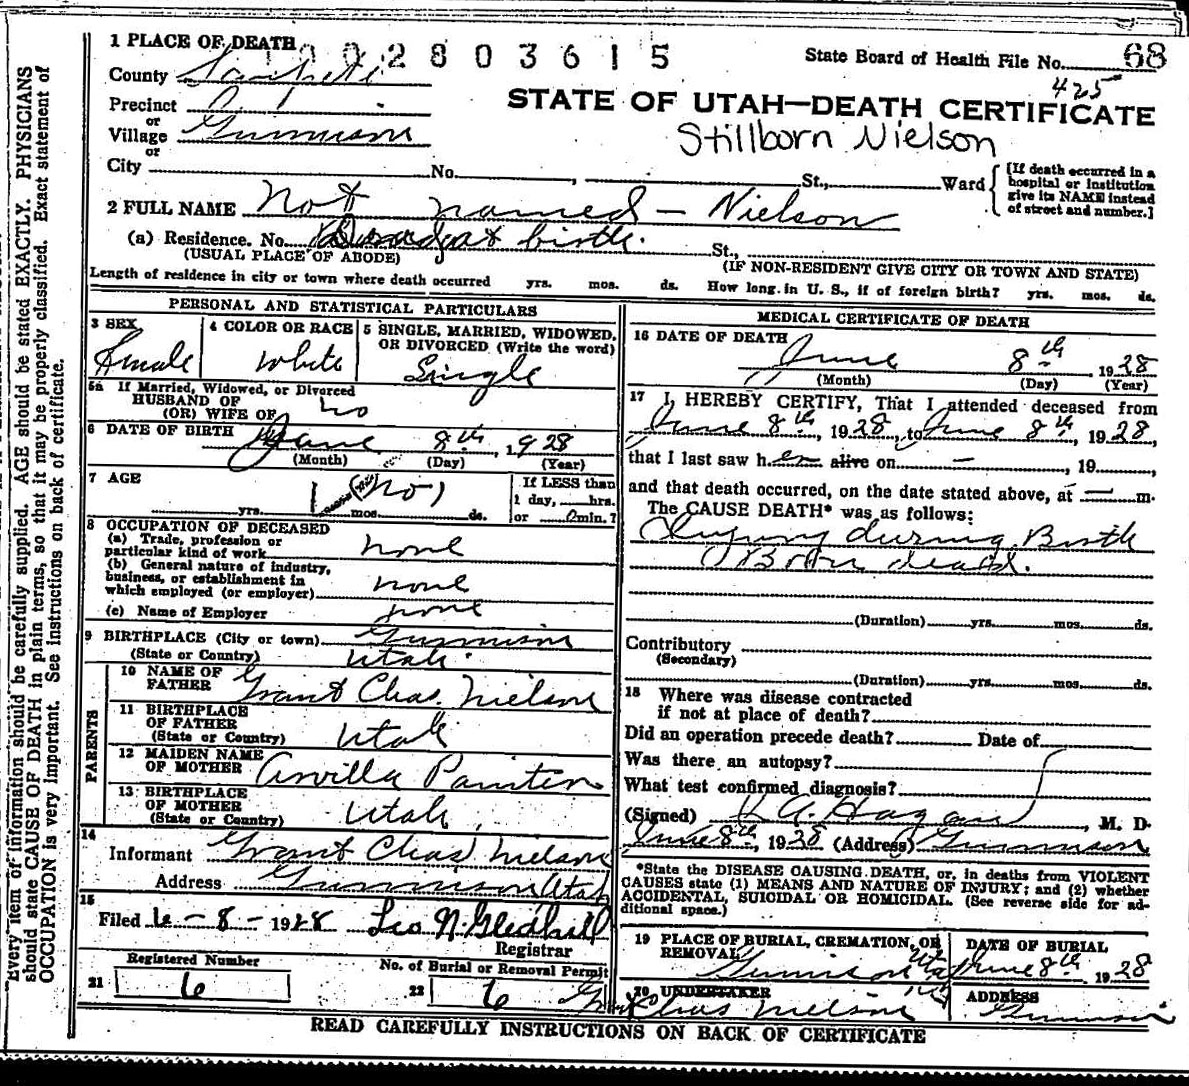 1 PLACE OF DEATH
1 0 0 2 8 0 3 6 1 5
State Board of Health File No. 68
425
County Sanpete
Precinct
or
Village Gunnison
or
City No. , St., Ward
STATE OF UTAH—DEATH CERTIFICATE
Stillborn Nielson
[If death occurred in a hospital or institution give its NAME instead of street and number.]
2 FULL NAME Not named - Nielson
(a) Residence. No. Dead at birth. St.,
(USUAL PLACE OF ABODE) (IF NON-RESIDENT GIVE CITY OR TOWN AND STATE)
Length of residence in city or town where death occurred yrs. mos. ds. How long in U. S., if of foreign birth? yrs. mos. ds.
PERSONAL AND STATISTICAL PARTICULARS
3 SEX Female
4 COLOR OR RACE white
5 SINGLE, MARRIED, WIDOWED, OR DIVORCED (Write the word) Single
5a If Married, Widowed, or Divorced
HUSBAND OF
(OR) WIFE OF no
6 DATE OF BIRTH June 8th, 1928
(Month) (Day) (Year)
7 AGE yrs. mos. ds.
no
If LESS than
1 day, hrs.
or 0 min.?
8 OCCUPATION OF DECEASED
(a) Trade, profession or
particular kind of work none
(b) General nature of industry,
business, or establishment in
which employed (or employer) none
(c) Name of Employer none
9 BIRTHPLACE (City or town) Gunnison
(State or Country) Utah.
PARENTS
10 NAME OF FATHER Grant Chas. Nielson
11 BIRTHPLACE OF FATHER (State or Country) Utah
12 MAIDEN NAME OF MOTHER Arvilla
13 BIRTHPLACE OF MOTHER (State or Country) Utah.
14
Informant Grant Chas Nielson
Address Gunnison Utah
15
Filed 6-8-1928 Leo N. Gledhill
Registrar
Registered Number
21 6
No. of Burial or Removal Permit
22 6
MEDICAL CERTIFICATE OF DEATH
16 DATE OF DEATH
June 8th 1928
(Month) (Day) (Year)
17 I, HEREBY CERTIFY, That I attended deceased from
June 8th, 1928, to June 8th, 1928,
that I last saw her alive on - , 19 ,
and that death occurred, on the date stated above, at — m.
The CAUSE DEATH* was as follows:
Injury during Birth
Born dead.
(Duration) yrs. mos. ds.
Contributory
(Secondary)
(Duration) yrs. mos. ds.
18 Where was disease contracted
if not at place of death?
Did an operation precede death? Date of
Was there an autopsy?
What test confirmed diagnosis?
(Signed) , M. D.
June 8th, 1928 (Address) Gunnison
*State the DISEASE CAUSING DEATH, or, in deaths from VIOLENT
CAUSES state (1) MEANS AND NATURE OF INJURY; and (2) whether
ACCIDENTAL, SUICIDAL OR HOMICIDAL. (See reverse side for ad-
ditional space.)
19 PLACE OF BURIAL, CREMATION, OR REMOVAL Gunnison Utah
DATE OF BURIAL June 8th 1928
20 UNDERTAKER Grant Chas Nielson
ADDRESS Gunnison
READ CAREFULLY INSTRUCTIONS ON BACK OF CERTIFICATE
"Every item of information should be carefully supplied. AGE should be stated EXACTLY. PHYSICIANS
should state CAUSE OF DEATH in plain terms, so that it may be properly classified. Exact statement of
OCCUPATION is very important. See instructions on back of certificate.